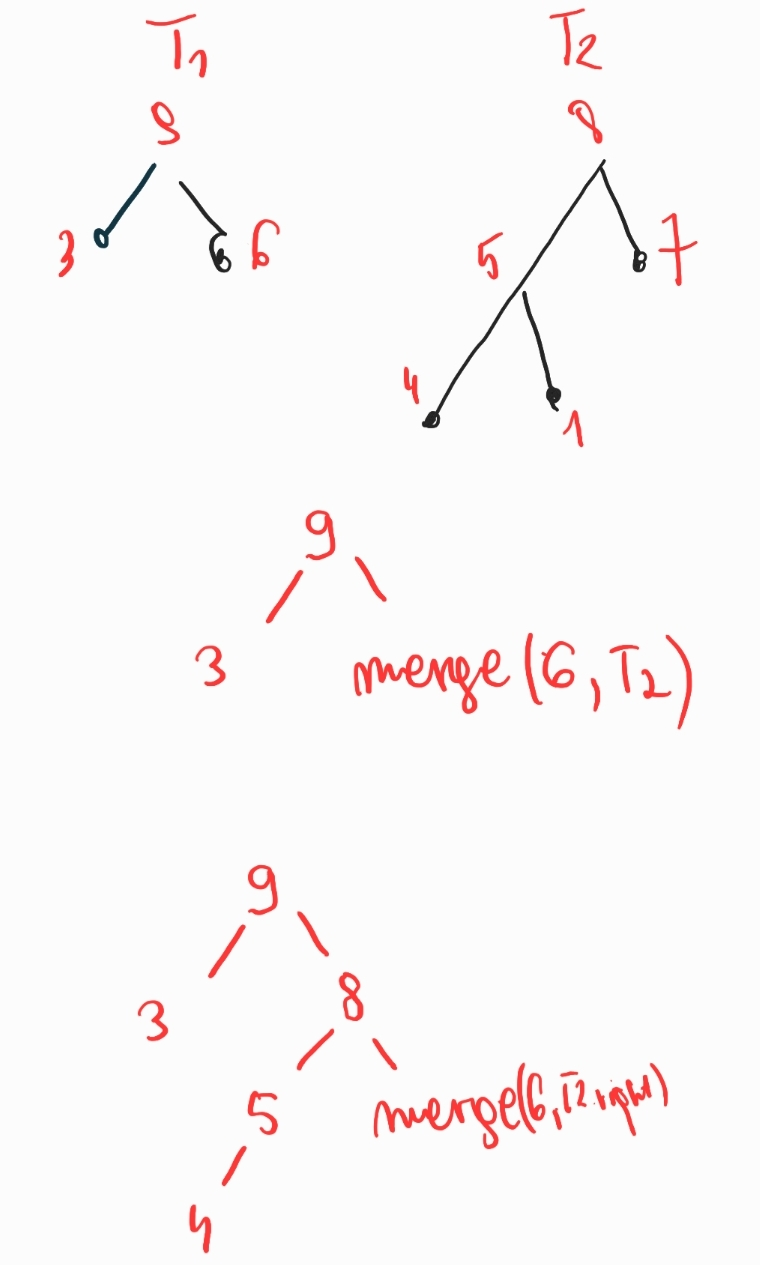 T1 T2
9 8
3 6 5 7
4 1
9
3 merge(6, T2)
9
3 8
5 merge(6, T2.right)
4